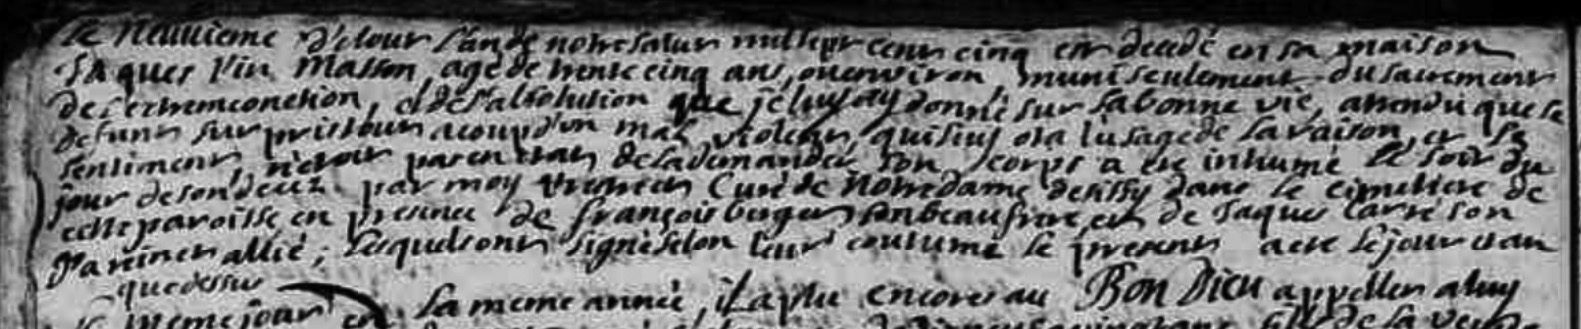 le neuuieme d'etour l'an de notre salut mil sept cent cinq est decedé en sa maison
Jaques Vin Masson, agé de trente cinq ans, ou environ, muni seulement du sacrement
de l'extremeonction, et de l'absolution que je luy ay donné sur sa bonne vie, attendu que le
defunt surpris tout acoup d'un mal violent, qui luy ota l'usage de la raison, et le
sentiment, n'etoit pas en etat de la demander, son corps a eté inhumé le soir du
jour de son decez par moy Curé de Notre dame dans le cimetiere de
cette paroisse, en presence de françois berger son beaufrere, et de Jaques Carré son
Parein et allié; lesquels ont signé selon leur coutume le present acte le jour et an
que dessus
le meme jour la meme année, il a plu encores au Bon Dieu appeller a luy
fille de la veuve